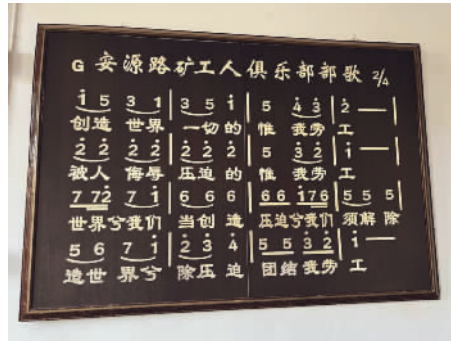 G 安源路矿工人俱乐部部歌 2/4
1̇ 5 3 1 | 3 5 1̇ | 5 4̇ 3̇ | 2̇ — |
创造 世界 一切的 惟 我劳 工
2̇ 2̇ 2̇ 2̇ | 2̇ 2̇ 2̇ | 5 3̇ 2̇ | 1̇ — |
被人 侮辱 压迫的 惟 我劳 工
7 7 2̇ 7 1̇ | 6 6 6 | 6 6 1̇ 7 6 | 5 5 5
世界兮我们 当创 造 压迫兮我们 须解 除
5 6 7 1̇ | 2̇ 3̇ 4̇ | 5 5 3̇ 2̇ | 1̇ —
造世 界兮 除压 迫 团结我劳 工